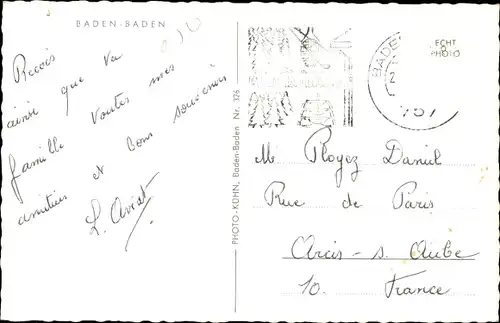 BADEN-BADEN
Reçois
ainsi que ta
famille toutes mes
amitiés et bons souvenirs
L. Aviat
PHOTO-KÜHN, Baden-Baden Nr. 326
BADEN
ECHT
PHOTO
M Ployez Daniel
Rue de Paris
Arcis-s. Aube
10. France